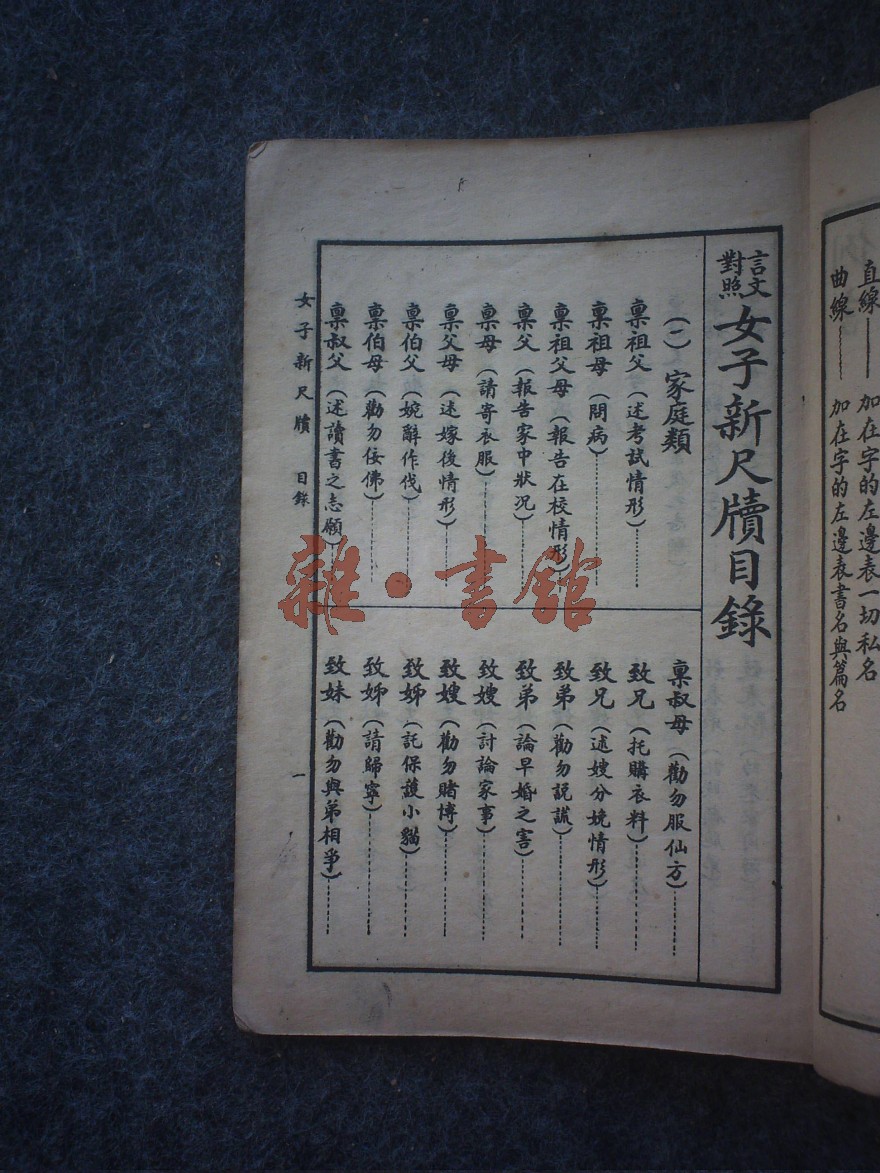 直線
加在字的左邊表一切私名
曲線
加在字的左邊表書名與篇名
言文對照 女子新尺牘目錄
(一)家庭類
稟祖父(述考試情形)
稟祖母(問病)
稟祖父母(報告在校情形)
稟父(報告家中狀況)
稟母(請寄衣服)
稟父母(述嫁後情形)
稟伯父(婉辭作伐)
稟伯母(勸勿佞佛)
稟叔父(述讀書之志願)
稟叔母(勸勿服仙方)
致兄(托購衣料)
致兄(述嫂分娩情形)
致弟(勸勿說謊)
致弟(論早婚之害)
致嫂(討論家事)
致嫂(勸勿賭博)
致姊(託保護小貓)
致姊(請歸寧)
致妹(勸勿與弟相爭)
女子新尺牘 目錄 一
雜·書館